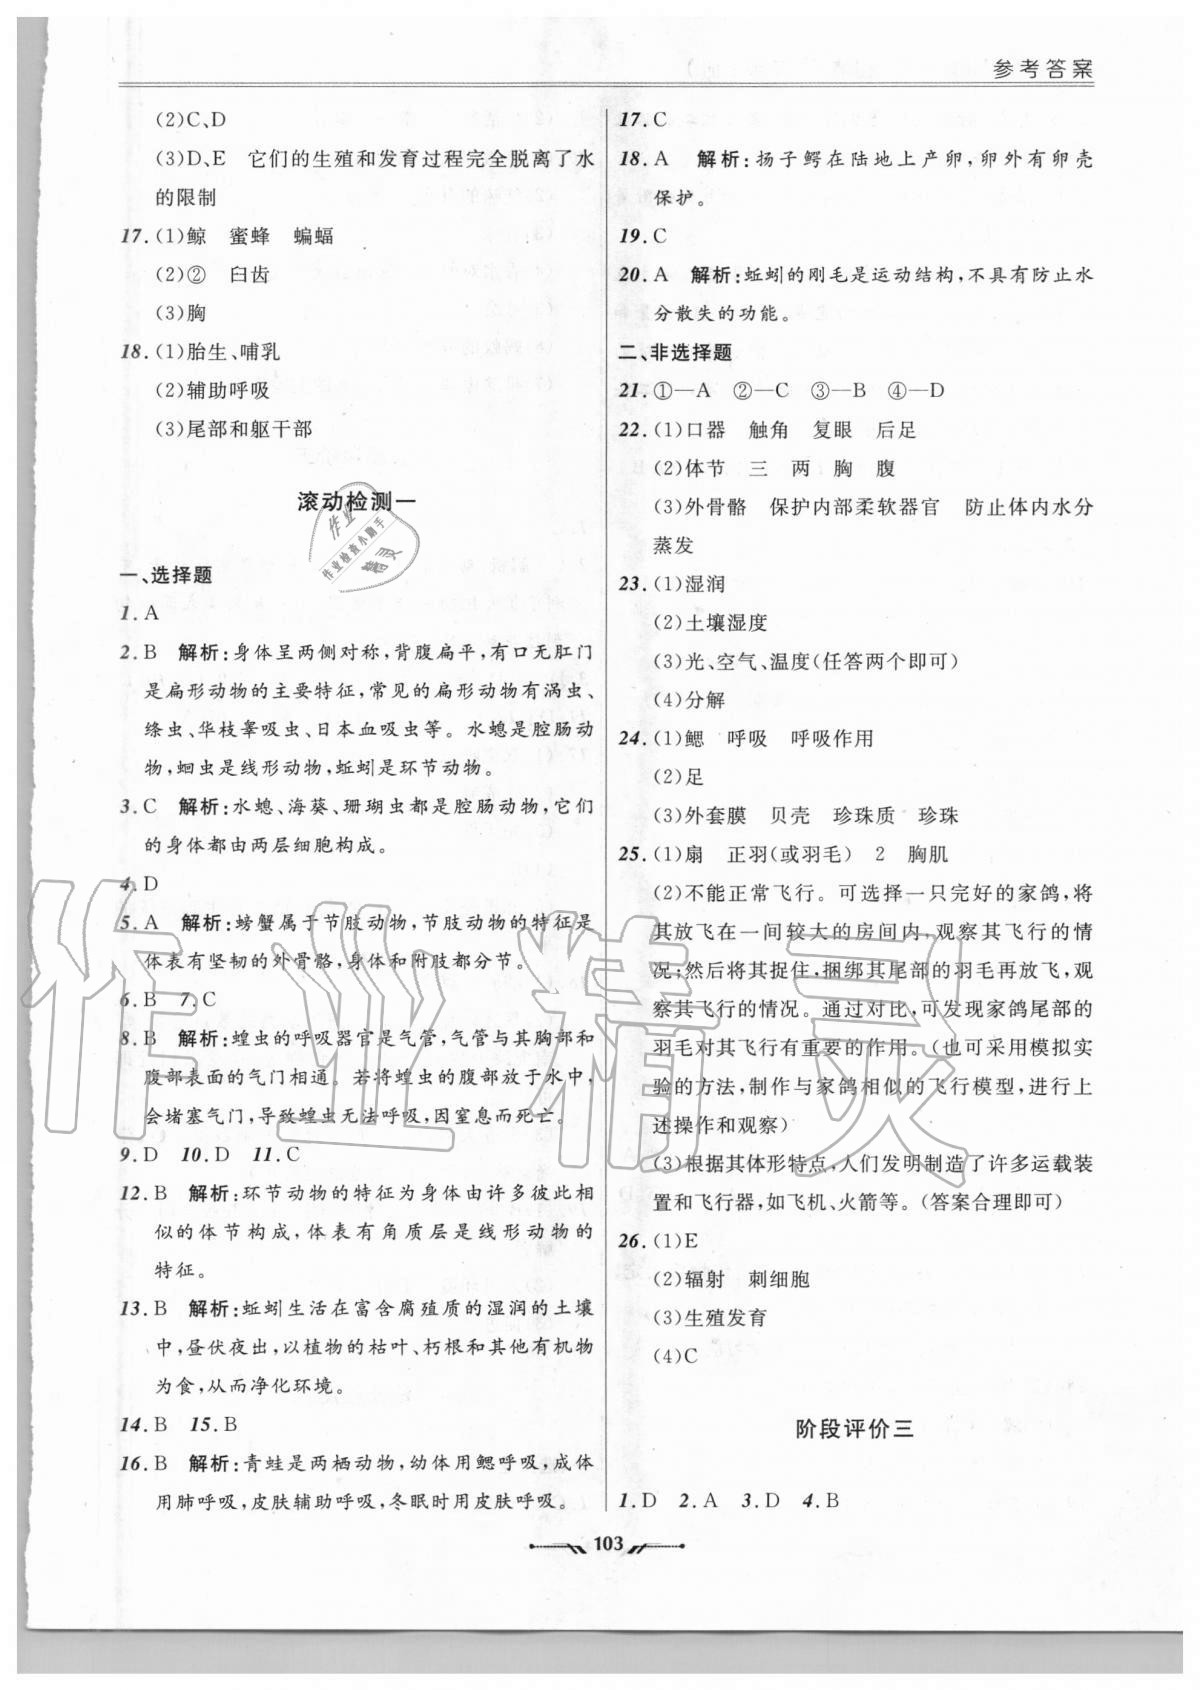 参考答案
(2)C、D
(3)D、E　它们的生殖和发育过程完全脱离了水
的限制
17. (1)鲸　蜜蜂　蝙蝠
(2)②　臼齿
(3)胸
18. (1)胎生、哺乳
(2)辅助呼吸
(3)尾部和躯干部
滚动检测一
一、选择题
1. A
2. B　解析:身体呈两侧对称,背腹扁平,有口无肛门
是扁形动物的主要特征,常见的扁形动物有涡虫、
绦虫、华枝睾吸虫、日本血吸虫等。水螅是腔肠动
物,蛔虫是线形动物,蚯蚓是环节动物。
3. C　解析:水螅、海葵、珊瑚虫都是腔肠动物,它们
的身体都由两层细胞构成。
4. D
5. A　解析:螃蟹属于节肢动物,节肢动物的特征是
体表有坚韧的外骨骼,身体和附肢都分节。
6. B　7. C
8. B　解析:蝗虫的呼吸器官是气管,气管与其胸部和
腹部表面的气门相通。若将蝗虫的腹部放于水中,
会堵塞气门,导致蝗虫无法呼吸,因窒息而死亡。
9. D　10. D　11. C
12. B　解析:环节动物的特征为身体由许多彼此相
似的体节构成,体表有角质层是线形动物的
特征。
13. B　解析:蚯蚓生活在富含腐殖质的湿润的土壤
中,昼伏夜出,以植物的枯叶、朽根和其他有机物
为食,从而净化环境。
14. B　15. B
16. B　解析:青蛙是两栖动物,幼体用鳃呼吸,成体
用肺呼吸,皮肤辅助呼吸,冬眠时用皮肤呼吸。
17. C
18. A　解析:扬子鳄在陆地上产卵,卵外有卵壳
保护。
19. C
20. A　解析:蚯蚓的刚毛是运动结构,不具有防止水
分散失的功能。
二、非选择题
21. ①—A　②—C　③—B　④—D
22. (1)口器　触角　复眼　后足
(2)体节　三　两　胸　腹
(3)外骨骼　保护内部柔软器官　防止体内水分
蒸发
23. (1)湿润
(2)土壤湿度
(3)光、空气、温度(任答两个即可)
(4)分解
24. (1)鳃　呼吸　呼吸作用
(2)足
(3)外套膜　贝壳　珍珠质　珍珠
25. (1)扇　正羽(或羽毛)　2　胸肌
(2)不能正常飞行。可选择一只完好的家鸽,将
其放飞在一间较大的房间内,观察其飞行的情
况;然后将其捉住,捆绑其尾部的羽毛再放飞,观
察其飞行的情况。通过对比,可发现家鸽尾部的
羽毛对其飞行有重要的作用。(也可采用模拟实
验的方法,制作与家鸽相似的飞行模型,进行上
述操作和观察)
(3)根据其体形特点,人们发明制造了许多运载装
置和飞行器,如飞机、火箭等。(答案合理即可)
26. (1)E
(2)辐射　刺细胞
(3)生殖发育
(4)C
阶段评价三
1. D　2. A　3. D　4. B
103
作业
作业检查小助手
精灵
作业精灵